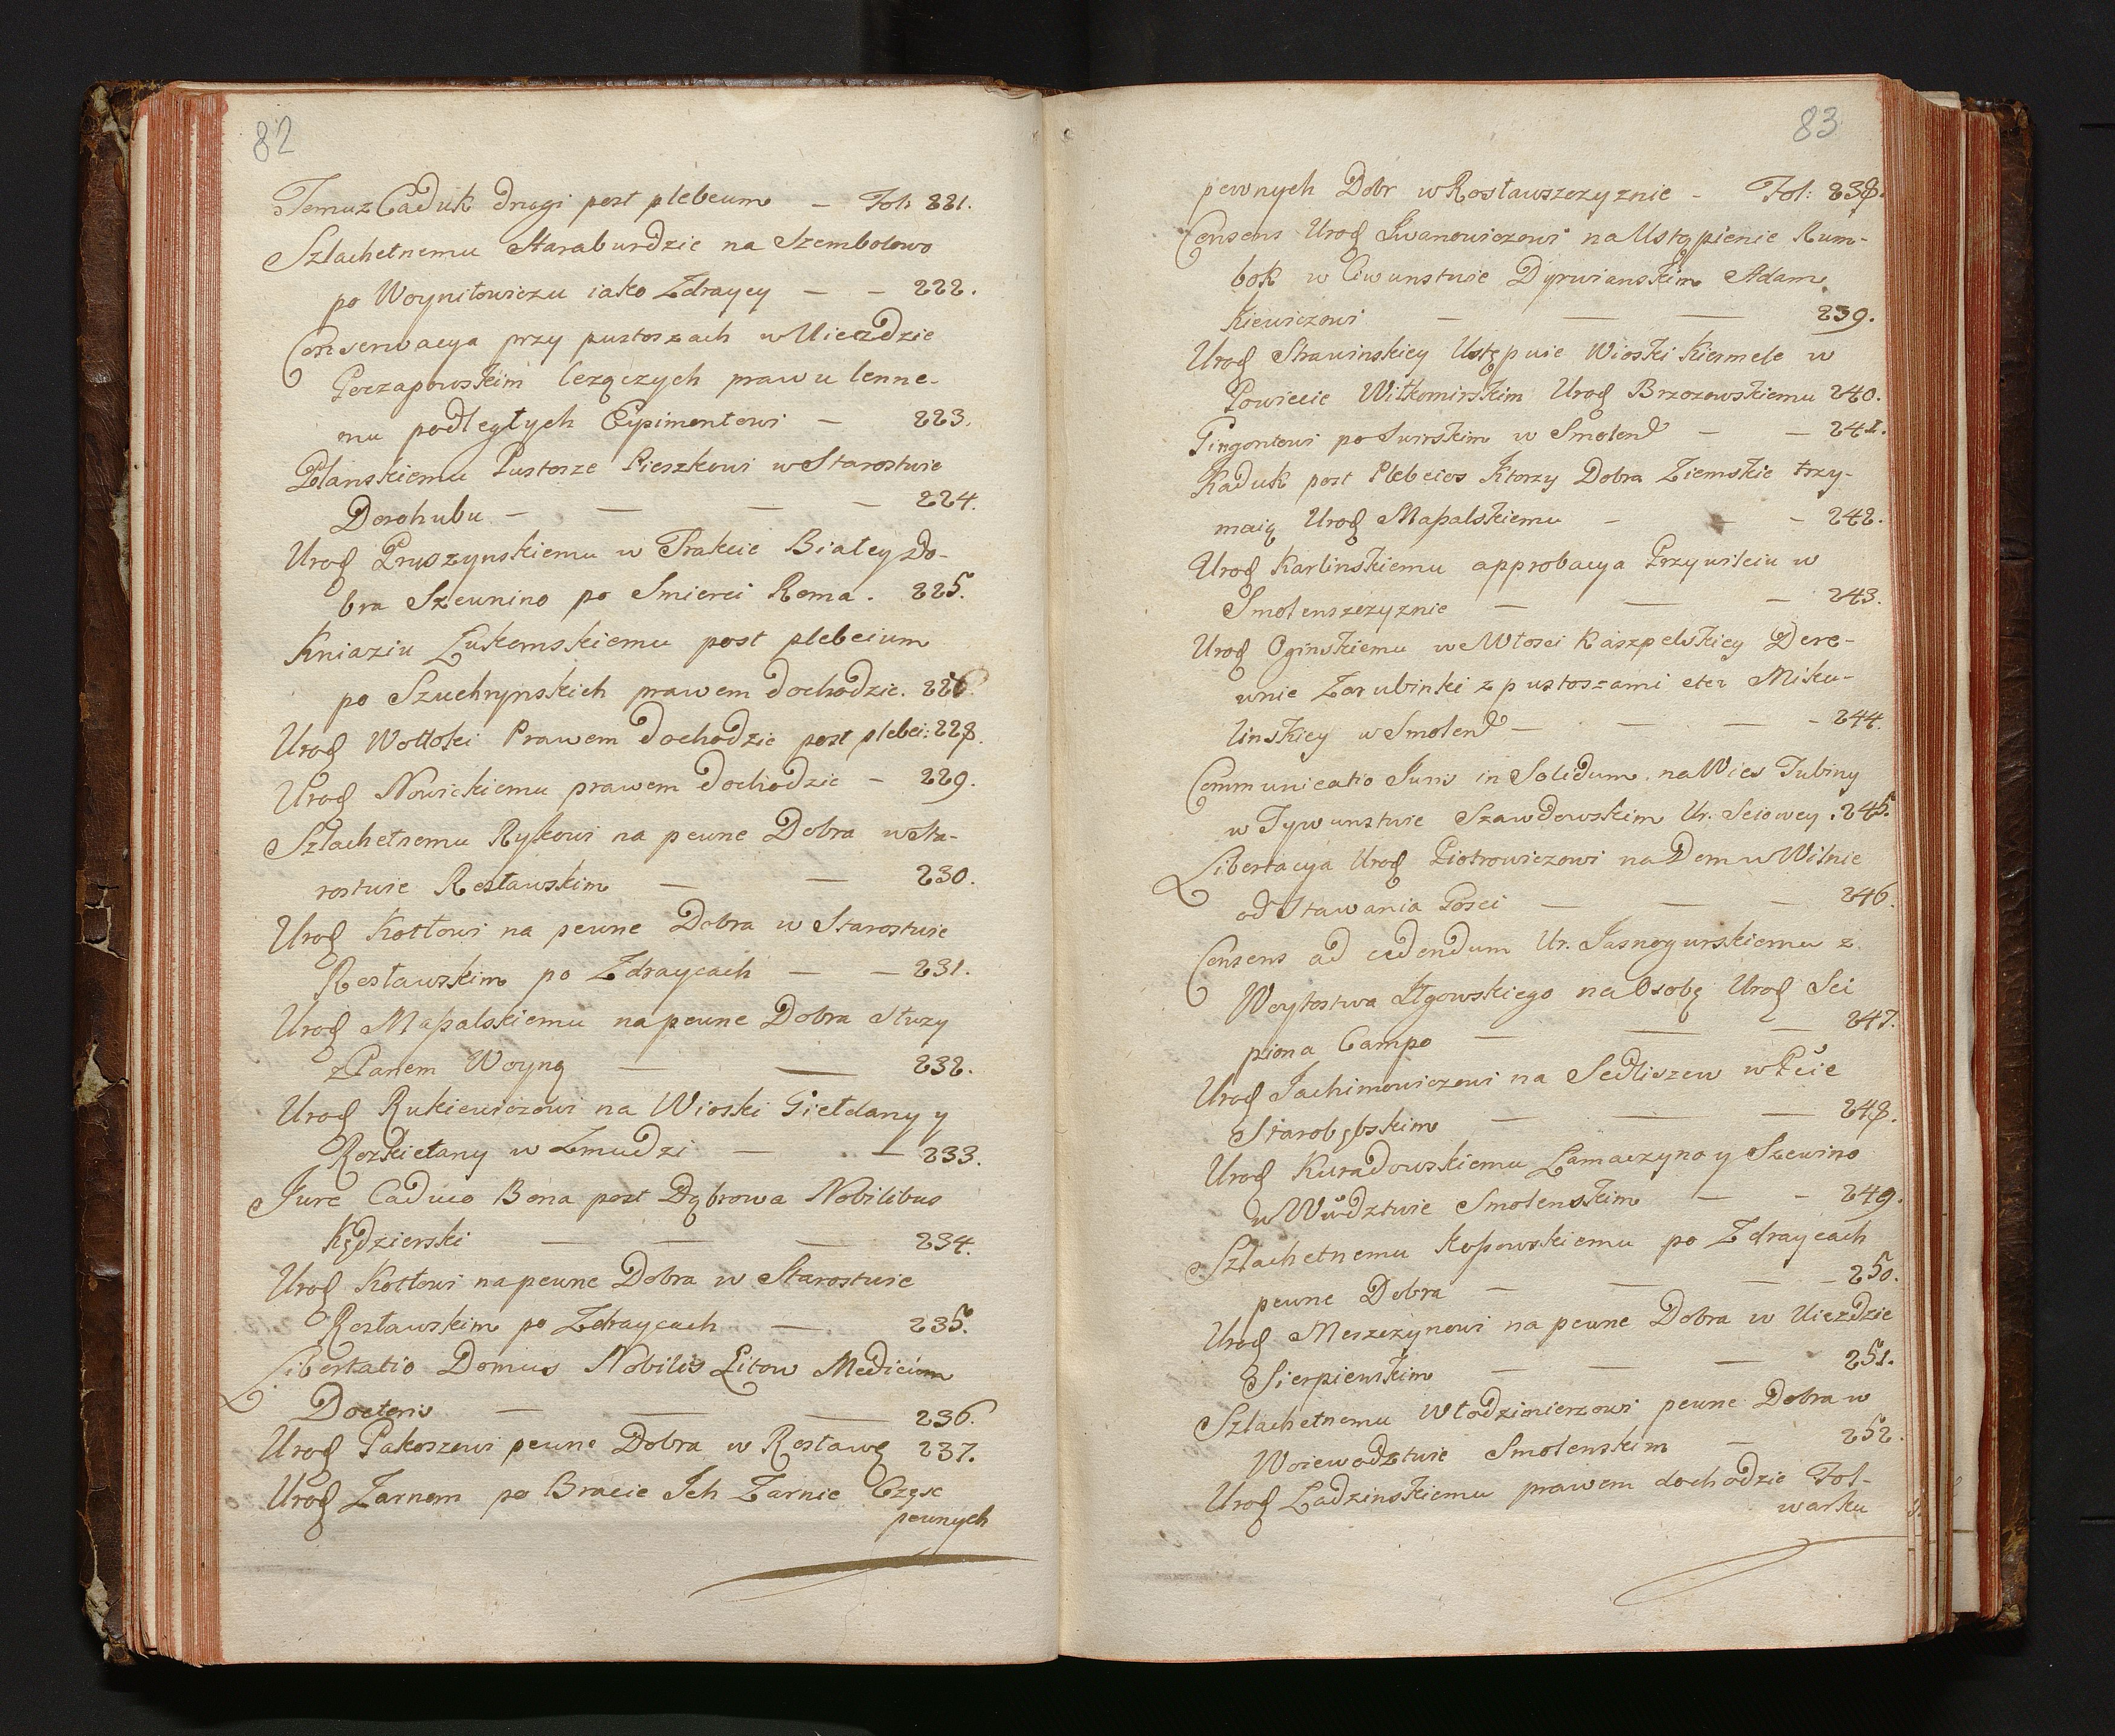 82
Temuz Caduk drugi post plebeum – Fol: 221.
Szlachetnemu Staraburdzie na Szembolowo
po Woyniłowiczu iako Zdraycy – – 222.
Conserwacya przy pustoszach w Uiezdzie
Poczapowskim lezączych prawu lenne-
mu podległych Eypimontowi – 223.
Planskiemu Pustosze Pieszkowi w Starostwie
Dorohubu – – – – 224.
Urod Pruszynskiemu w Trakcie Białey Do-
bra Szeunino po Smierci Roma. 225.
Kniaziu Łukomskiemu post plebeium
po Szuchrynskich prawem dochodzic. 226
Urod Wołłoki Prawem dochodzic post plebei: 228.
Urod Nowickiemu prawem dochodzic – 229.
Szlachetnemu Rykowi na pewne Dobra w Sta-
rostwie Rosławskim – – 230.
Urod Kotłowi na pewne Dobra w Starostwie
Rosławskim po Zdraycach – – 231.
Urod Massalskiemu na pewne Dobra słuzy
z Panem Woyną – – 232.
Urod Rukiewiczowi na Wioski Giełdany y
Rozkiełany w Zmudzi – – 233.
Jure Caduco Bona post Dąbrowa Nobilibus
Kędzierski – – – 234.
Urod Kotłowi na pewne Dobra w Starostwie
Rosławskim po Zdraycach – 235.
Libertatio Domus Nobilis Litow Medicinæ
Doctoris – – – 236.
Urod Pakoszowi pewne Dobra w Rosławę 237.
Urod Zarnom po Bracie Ich Zarnie Częsc
pewnych
83
pewnych Dobr w Rosławszczyznie – Fol: 238.
Consens Urod Iwanowiczowi na Ustąpienie Rum-
bok w Ciwunstwie Dyrwianskim Adam
Kiewiczowi – – – 239.
Urod Strawinskiey Ustępuie Wioski Kiermele w
Powiecie Wiłkomirskim Urod Brzozowskiemu 240.
Pingontowi po Swirskim w Smolend – – 241.
Kaduk post Plebeios Ktorzy Dobra Ziemskie trzy-
maią Urod Massalskiemu – – – 242.
Urod Karlinskiemu approbacya Przywileiu w
Smolenszczyznie – – – 243.
Urod Oginskiemu we Włosci Kaszpelskiey Dere-
wnie Zarubinki z pustoszami etc Miku-
linskiey w Smolend – – – – 244.
Communicatio Juris in Solidum na Wies Tubiny
w Tywunstwie Szawdowskim Ur. Sciowey. 245.
Libertacya Urod Piotrowiczowi na Dom w Wilnie
od Stawania Gosci – – – 246.
Consens ad cedendum Ur. Jasnogurskiemu z
Woytostwa Iłgowskiego na Osobę Urod Sci
piona Campo – – – 247.
Urod Jachimowiczowi na Sedliszew w Pcie
Starobębskim – – – 248.
Urod Kuradowskiemu Łamaczyno y Szewino
w Wdztwie Smolenskim – – 249.
Szlachetnemu Kossowskiemu po Zdraycach
pewne Dobra – – – – 250.
Urod Meszczynowi na pewne Dobra w Uiezdzie
Sierpienskim – – – 251.
Szlachetnemu Włodzimierzowi pewne Dobra w
Woiewodztwie Smolenskim – 252.
Urod Ladzinskiemu prawem dochodzic Fol-
warku